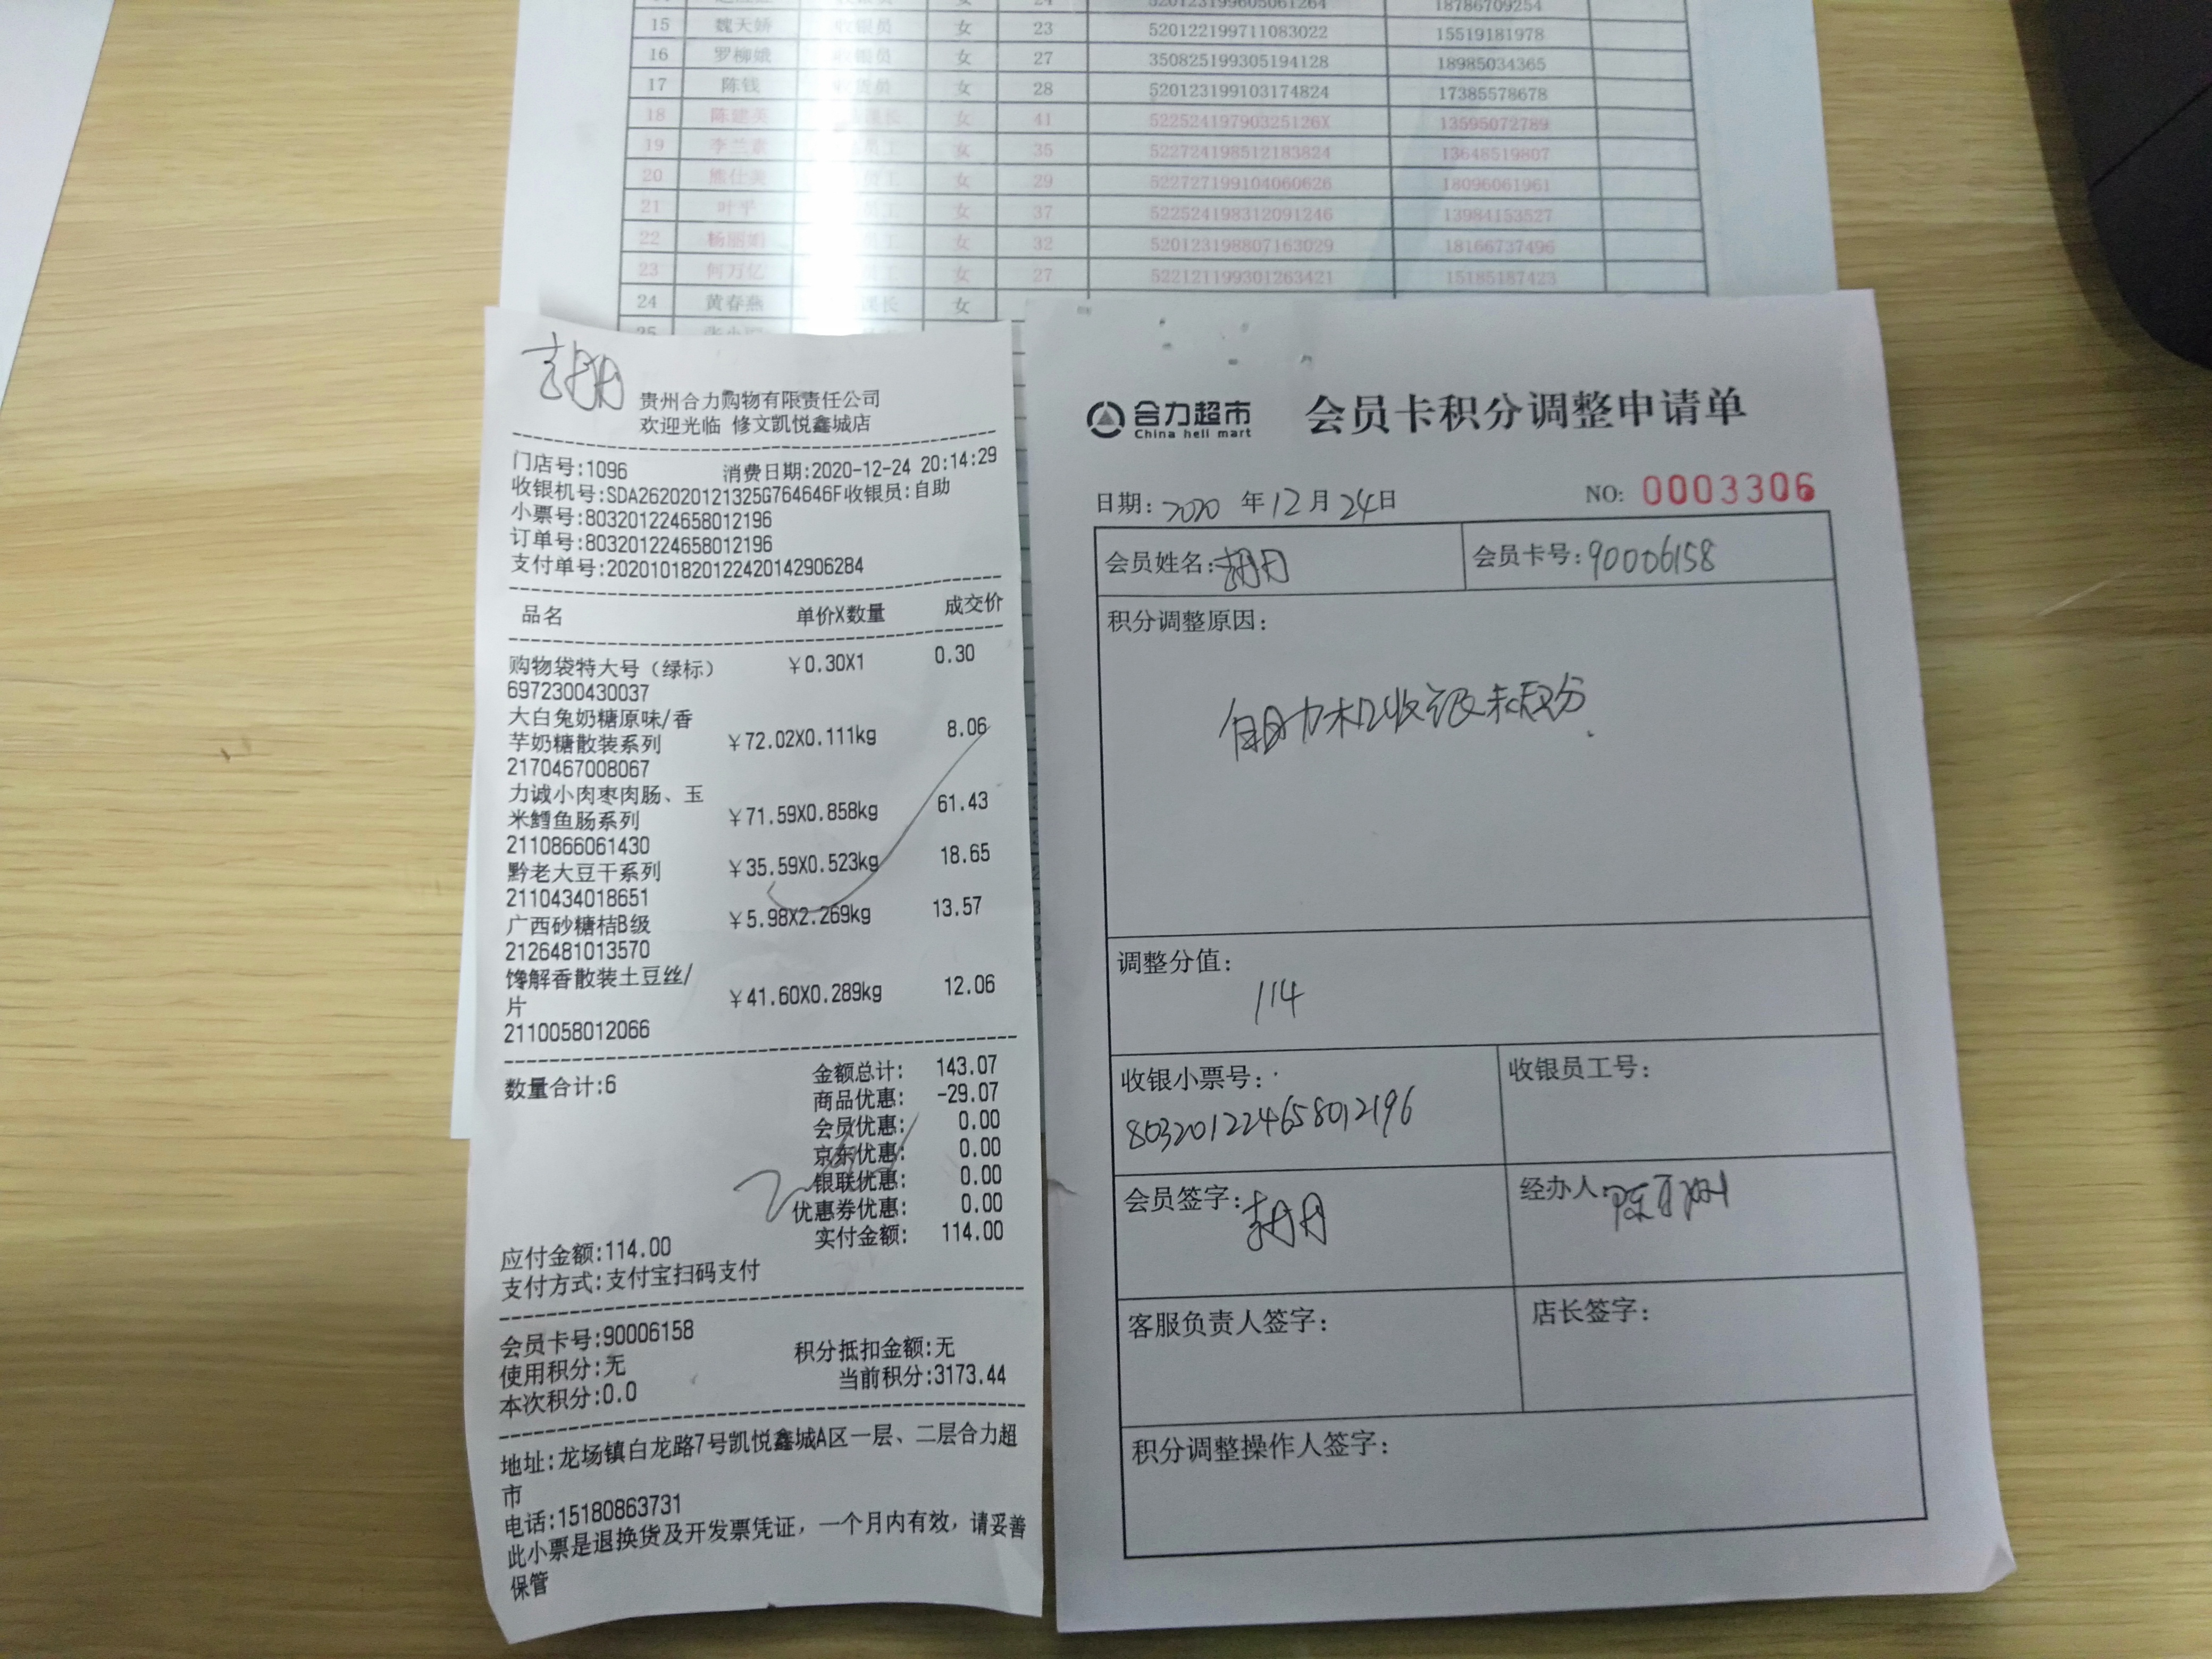 15 魏天娇 收银员 女 23 520122199711083022 15519181978
16 罗柳娥 收银员 女 27 350825199305194128 18985034365
17 陈钱 女 28 520123199103174824 17385578678
18 陈建美 女 41 52252419790325126X 13595072789
19 女 35 522724198512183824 13648519807
20 熊仕美 女 29 522727199104060626 18096061961
21 叶平 女 37 522524198312091246 13984153527
22 杨丽娟 女 32 520123198807163029 18166737496
23 何万亿 女 27 522121199301263421 15185187423
24 黄春燕 课长 女
贵州合力购物有限责任公司
欢迎光临 修文凯悦鑫城店
门店号:1096 消费日期:2020-12-24 20:14:29
收银机号:SDA262020121325G764646F收银员:自助
小票号:803201224658012196
订单号:803201224658012196
支付单号:2020101820122420142906284
品名 单价X数量 成交价
购物袋特大号（绿标） ￥0.30X1 0.30
6972300430037
大白兔奶糖原味/香
芋奶糖散装系列 ￥72.02X0.111kg 8.06
2170467008067
力诚小肉枣肉肠、玉
米鳕鱼肠系列 ￥71.59X0.858kg 61.43
2110866061430
黔老大豆干系列 ￥35.59X0.523kg 18.65
2110434018651
广西砂糖桔B级 ￥5.98X2.269kg 13.57
2126481013570
馋解香散装土豆丝/
片 ￥41.60X0.289kg 12.06
2110058012066
数量合计:6 金额总计: 143.07
商品优惠: -29.07
会员优惠: 0.00
京东优惠: 0.00
银联优惠: 0.00
优惠券优惠: 0.00
应付金额:114.00 实付金额: 114.00
支付方式:支付宝扫码支付
会员卡号:90006158
使用积分:无 积分抵扣金额:无
本次积分:0.0 当前积分:3173.44
地址:龙场镇白龙路7号凯悦鑫城A区一层、二层合力超
市
电话:15180863731
此小票是退换货及开发票凭证，一个月内有效，请妥善
保管
合力超市 会员卡积分调整申请单
China heli mart
日期: 2020 年 12 月 24 日 NO: 0003306
会员姓名: 会员卡号: 90006158
积分调整原因:
自助力机收银未积分
调整分值:
114
收银小票号: 收银员工号:
803201224658012196
会员签字: 经办人:
客服负责人签字: 店长签字:
积分调整操作人签字: